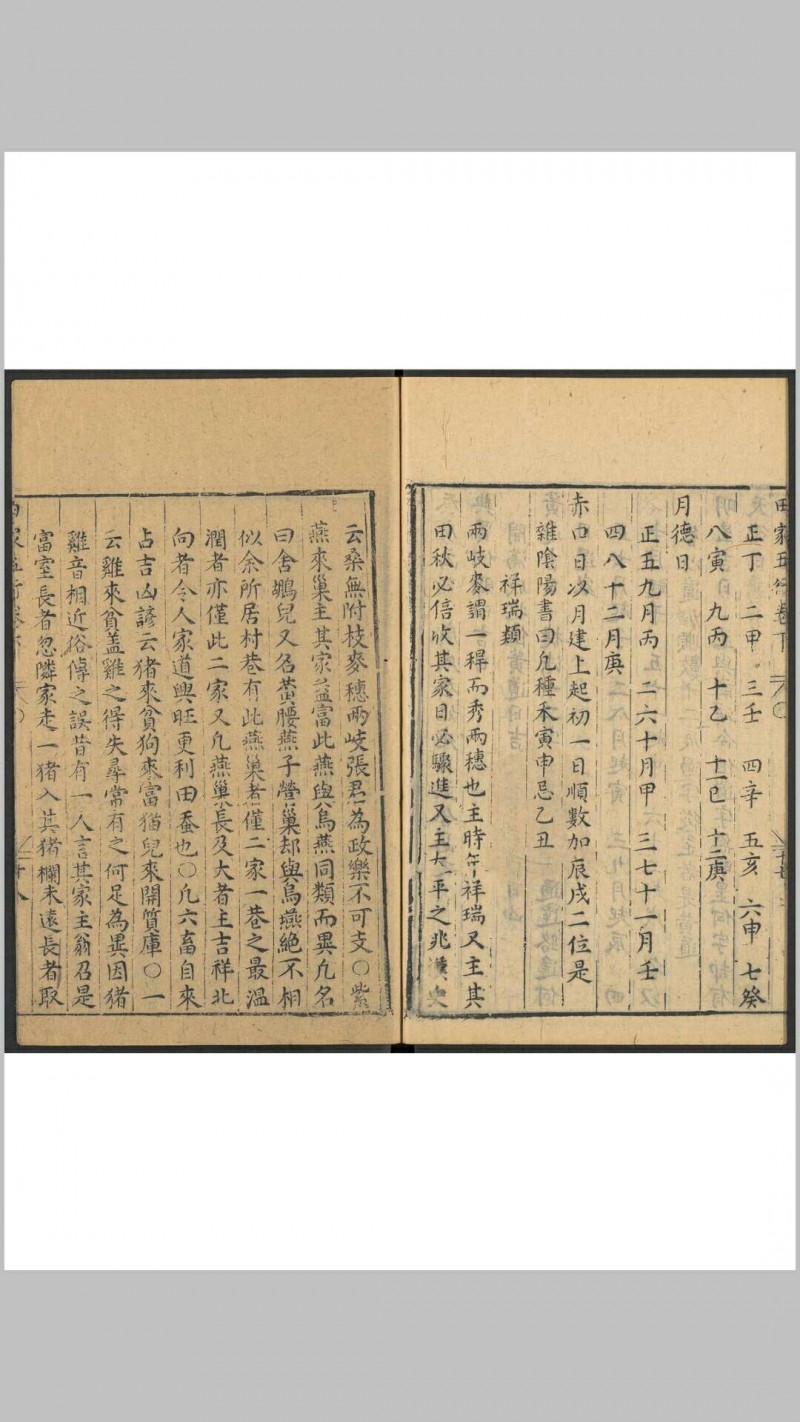 正丁　二甲　三壬　四辛　五亥　六申　七癸
八寅　九丙　十乙　十一巳　十二庚
月德日
正五九月丙　二六十月甲　三七十一月壬
四八十二月庚
赤口日以月建上起初一日順數加辰戌二位是
雜陰陽書曰凡種禾寅申忌乙丑
祥瑞類
兩岐麥謂一稈而秀兩穗也主時年祥瑞又主其
田秋必倍收其家日必驟進又主太平之兆漢史
云桑無附枝麥穗兩岐張君為政樂不可支〇紫
燕來巢主其家益富此燕與烏燕同類而異凡名
曰舍鵶兒又名黃腰燕子營巢却與烏燕絶不相
似余所居村巷有此燕巢者僅二家一巷之最溫
潤者亦僅此二家又凡燕巢長及大者主吉祥北
向者令人家道興旺更利田蚕也〇凡六畜自來
占吉凶諺云猪來貧狗來富猫兒來開質庫〇一
云雞來貧盖雞之得失尋常有之何足為異因猪
雞音相近俗傳之誤昔有一人言其家主翁召是
富室長者忽隣家走一猪入其猪欄未遠長者取